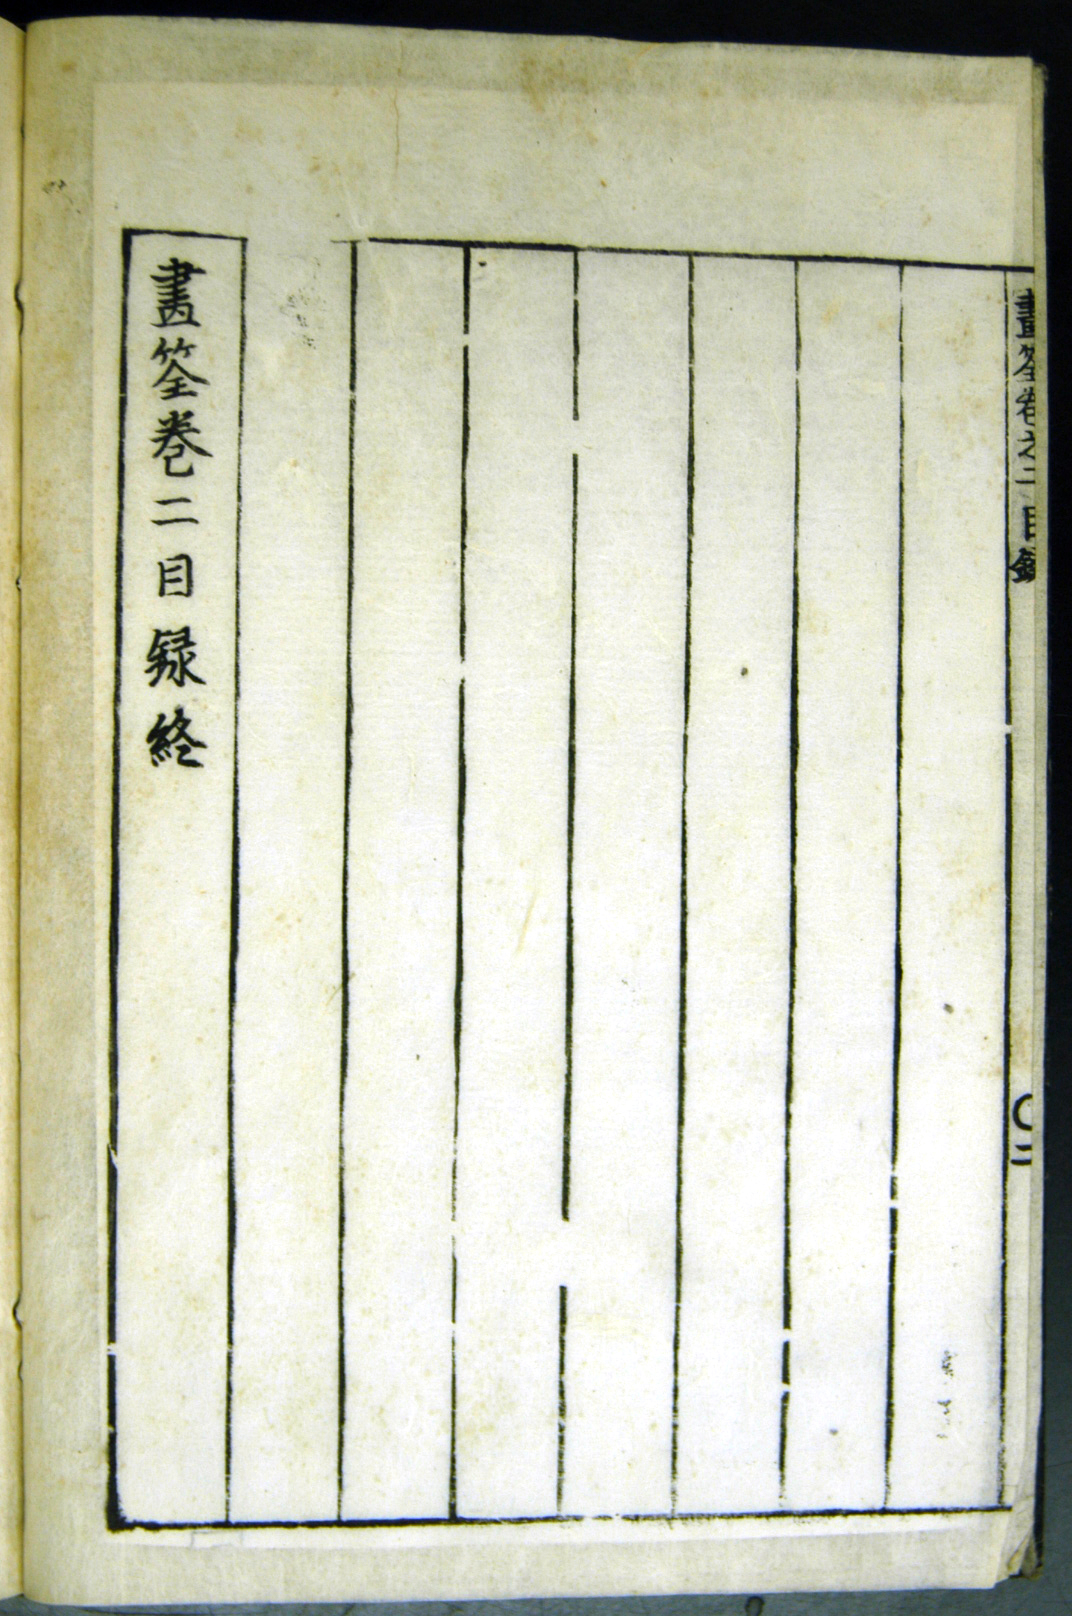 畫筌卷之二目録
〇二
畫筌卷二目録終